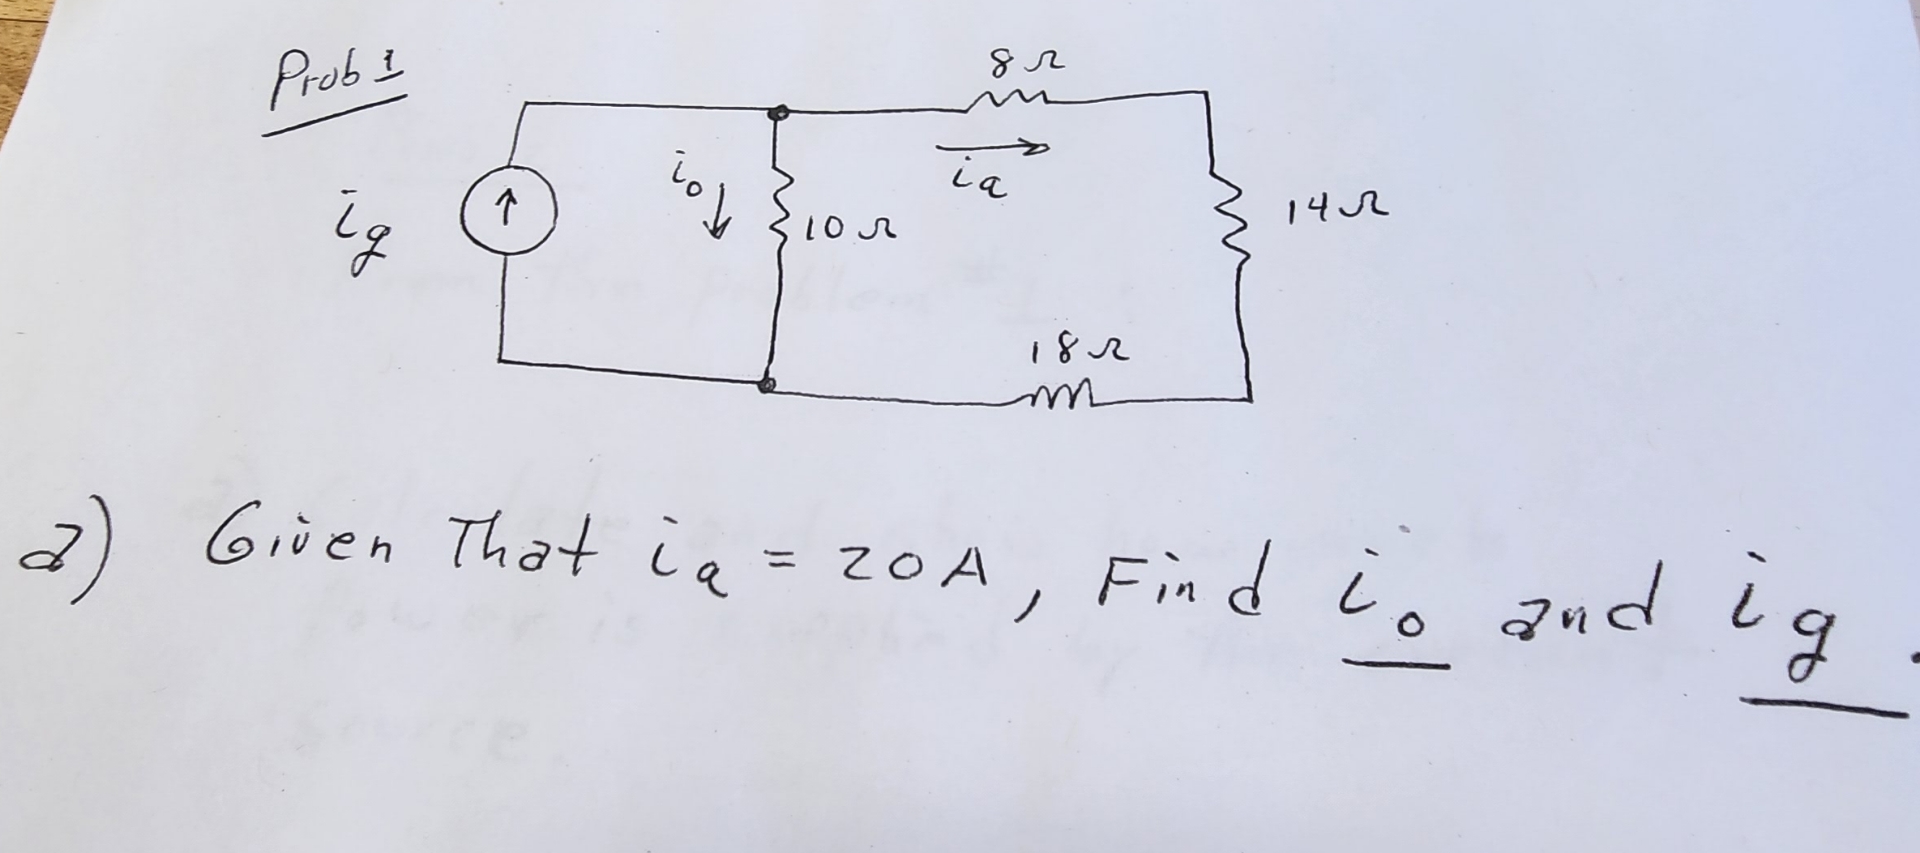 Prob 1
8Ω
i₀
iₐ
i_g
10Ω
14Ω
18Ω
a) Given That iₐ = 20A, Find i₀ and i_g.